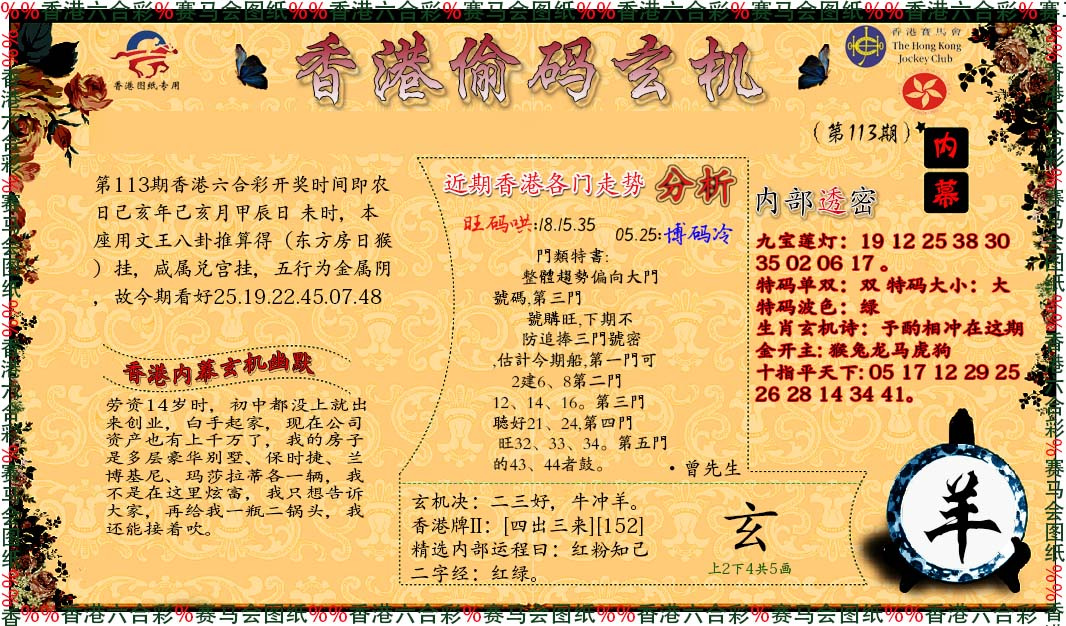 %%香港六合彩%赛马会图纸%%香港六合彩%赛马会图纸%%香港六合彩%赛马会图纸%%香港六合彩%赛马会图纸%%香港六合彩%赛马
香港图纸专用
香港偷码玄机
香港賽馬會
The Hong Kong
Jockey Club
(第113期)
内
幕
第113期香港六合彩开奖时间即农
日己亥年己亥月甲辰日 未时，本
座用文王八卦推算得（东方房日猴
）挂，咸属兑宫挂，五行为金属阴
，故今期看好25.19.22.45.07.48
香港内幕玄机幽默
劳资14岁时，初中都没上就出
来创业，白手起家，现在公司
资产也有上千万了，我的房子
是多层豪华别墅、保时捷、兰
博基尼、玛莎拉蒂各一辆，我
不是在这里炫富，我只想告诉
大家，再给我一瓶二锅头，我
还能接着吹。
近期香港各门走势 分析
旺码哄:18.15.35
05.25:博码冷
門類特書:
整體趨勢偏向大門
號碼,第三門
號購旺,下期不
防追捧三門號密
,估計今期船,第一門可
2建6、8第二門
12、14、16。第三門
聽好21、24,第四門
旺32、33、34。第五門
的43、44者鼓。
·曾先生
玄机决：二三好，牛冲羊。
香港牌II：[四出三来][152]
精选内部运程曰：红粉知己
二字经：红绿。
玄
上2下4共5画
内部透密
九宝莲灯：19 12 25 38 30
35 02 06 17 。
特码单双：双 特码大小：大
特码波色：绿
生肖玄机诗：予酌相冲在这期
金开主: 猴兔龙马虎狗
十指平天下: 05 17 12 29 25
26 28 14 34 41。
羊
香%%香港六合彩%赛马会图纸%%香港六合彩%赛马会图纸%%香港六合彩%赛马会图纸%%香港六合彩%赛马会图纸%%香港六合彩%